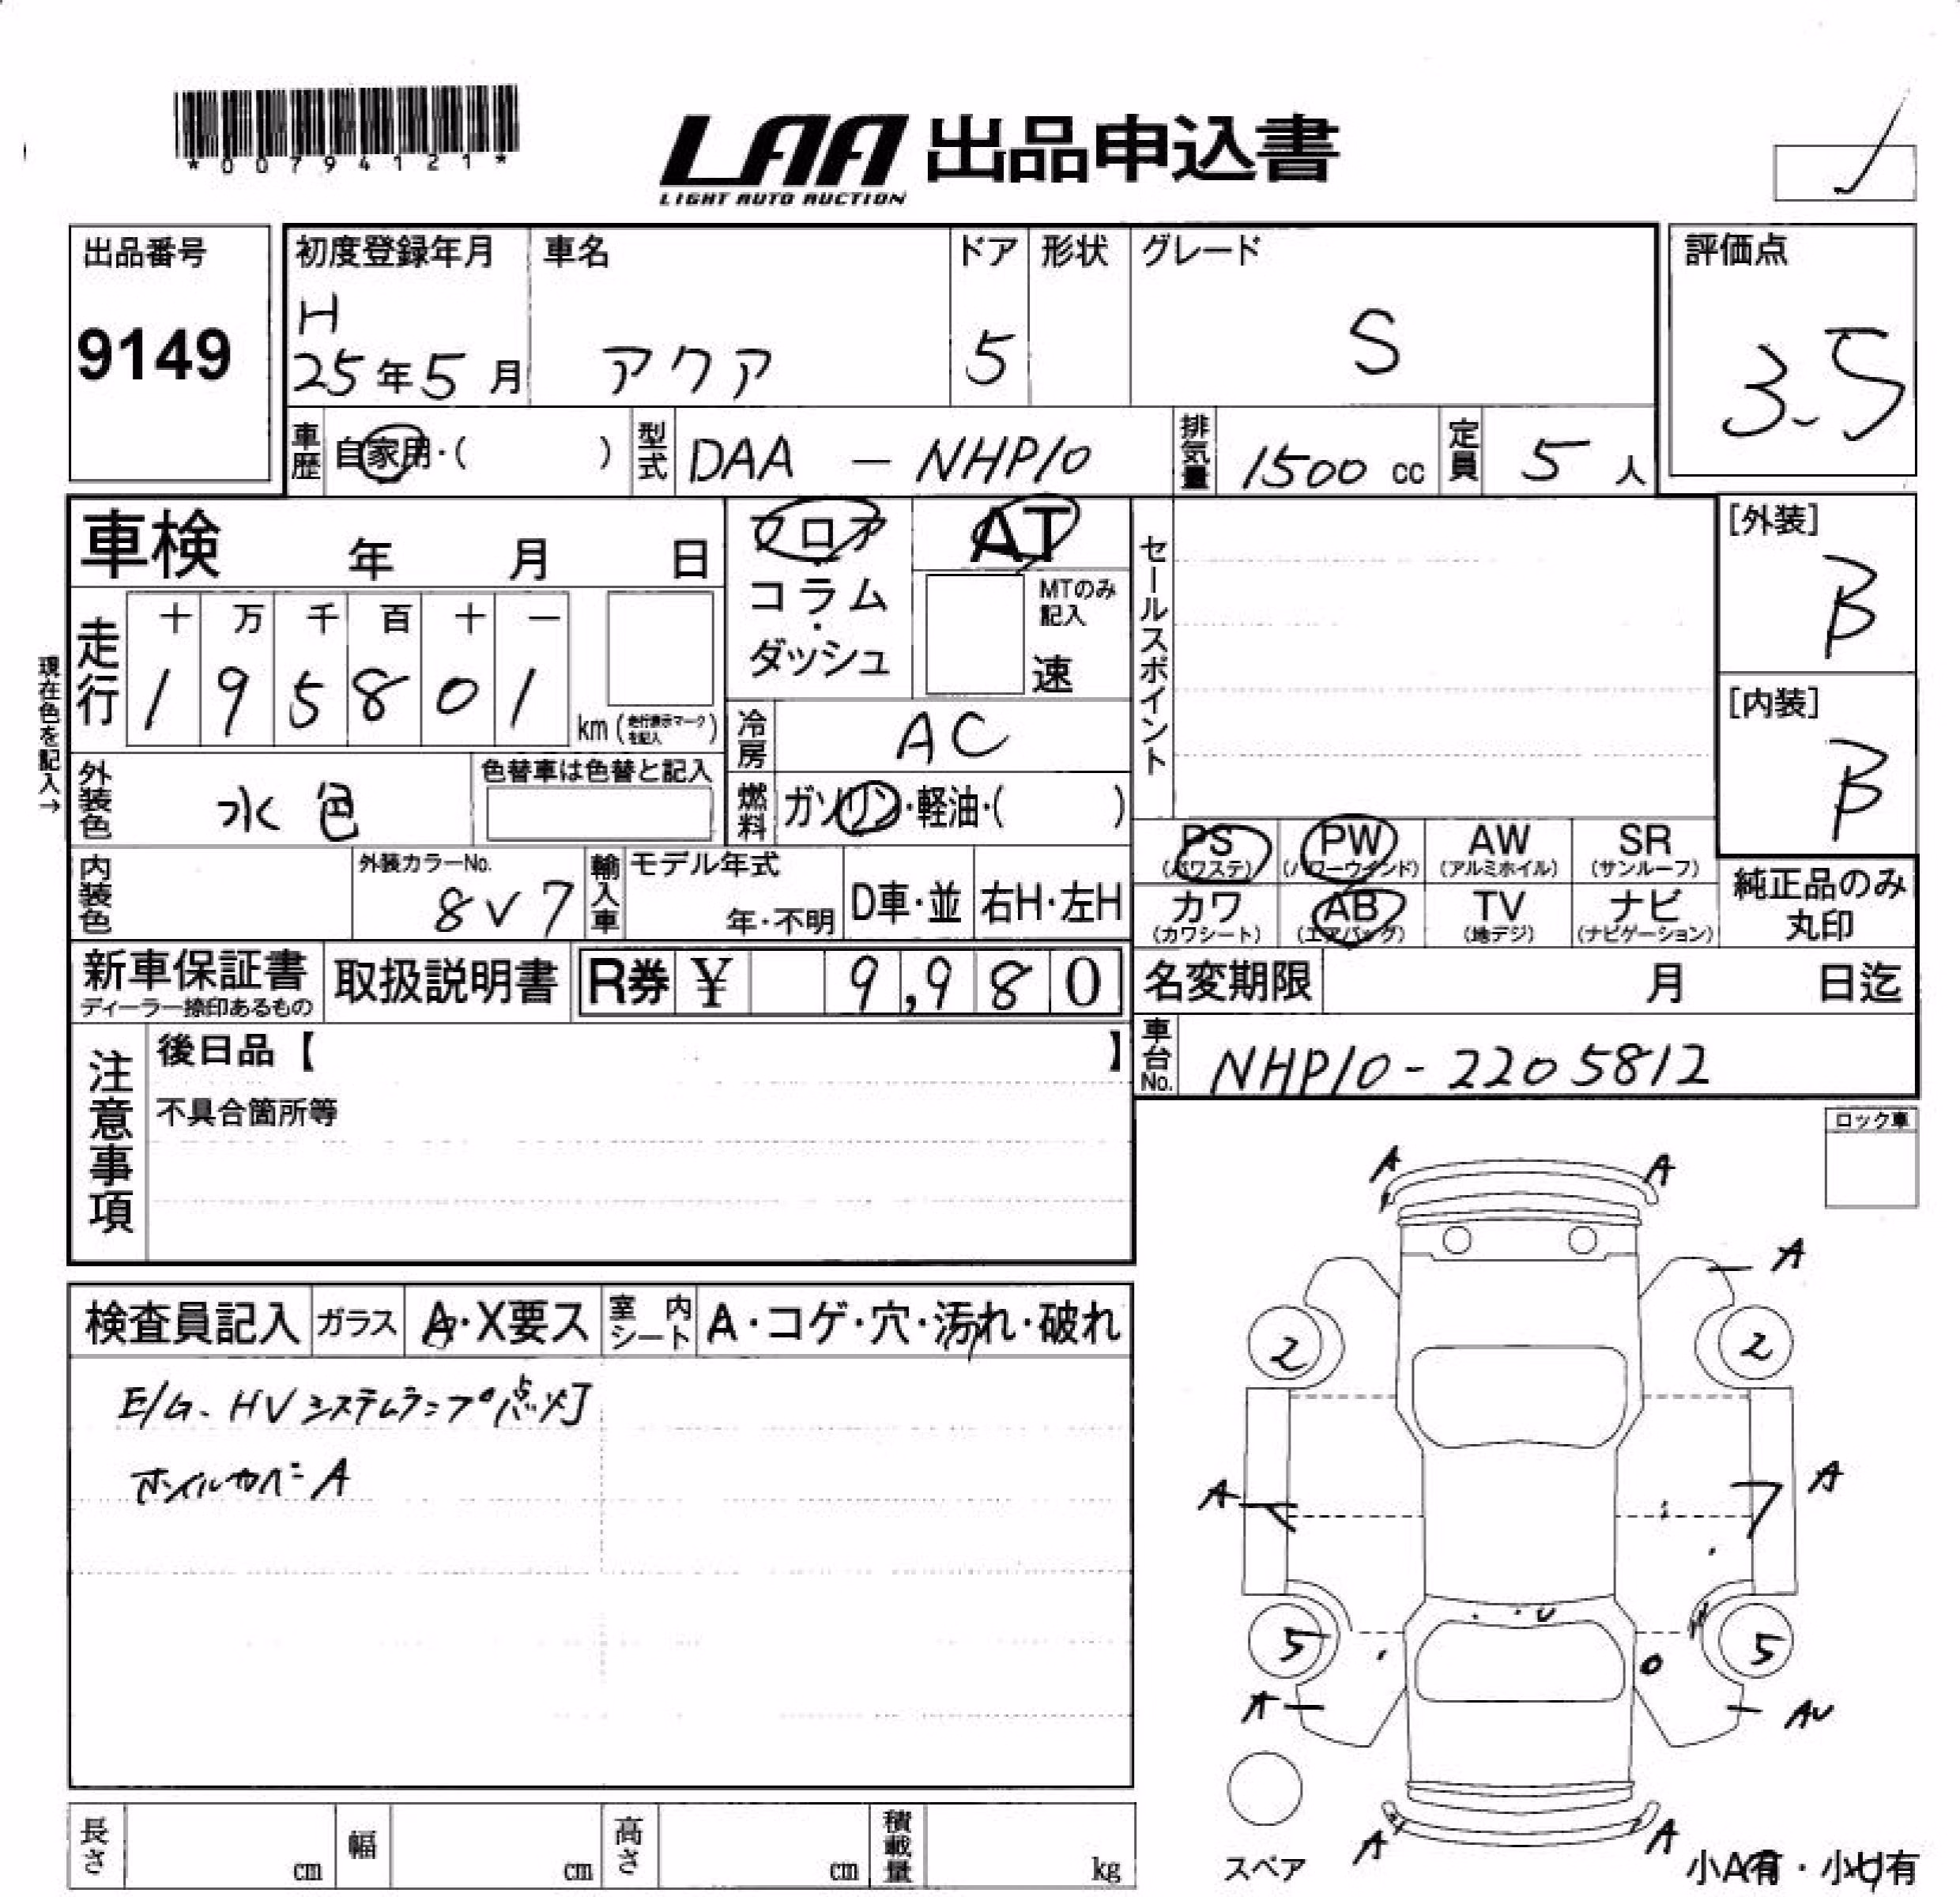 *00794121*
LAA 出品申込書
LIGHT AUTO AUCTION
出品番号
9149
初度登録年月
H
25年5月
車名
アクア
ドア
5
形状
グレード
S
評価点
3.5
車歴 自家用・( )
型式 DAA － NHP10
排気量 1500 cc
定員 5 人
車検 年 月 日
フロア・コラム・ダッシュ
AT
MTのみ記入
速
セールスポイント
[外装]
B
[内装]
B
現在色を記入→
走行
十 万 千 百 十 一
1 9 5 8 0 1
km (走行表示マークを記入)
冷房 AC
外装色 水色
色替車は色替と記入
燃料 ガソリン・軽油・( )
内装色
外装カラーNo.
8V7
輸入車
モデル年式
年・不明
D車・並
右H・左H
PS (パワステ)
PW (パワーウインド)
AW (アルミホイル)
SR (サンルーフ)
カワ (カワシート)
AB (エアバッグ)
TV (地デジ)
ナビ (ナビゲーション)
純正品のみ
丸印
新車保証書
ディーラー捺印あるもの
取扱説明書
R券 ¥ 9,980
名変期限 月 日迄
注意事項
後日品【 】
不具合箇所等
車台No. NHP10-2205812
ロック車
検査員記入
ガラス A・X要ス
室内シート A・コゲ・穴・汚れ・破れ
E/G. HVシステムランプ点灯
ホイルカバー A
A A
A
2 2
A A
U
5 5
A AU
スペア
A A
小A有・小U有
長さ cm
幅 cm
高さ cm
積載量 kg